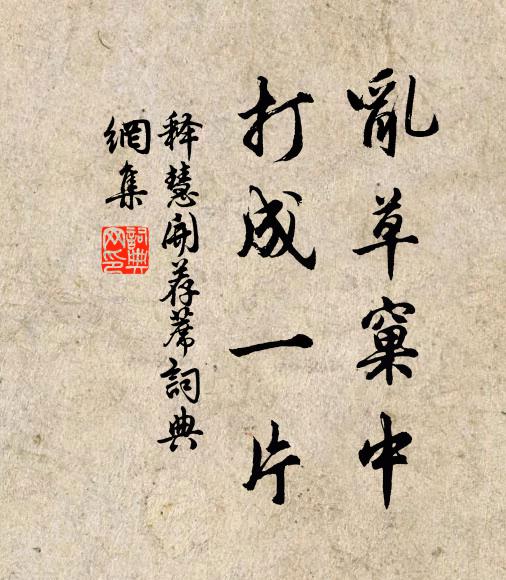 亂草窠中
打成一片
释慧開荐蓆詞典
網集
詞典網印